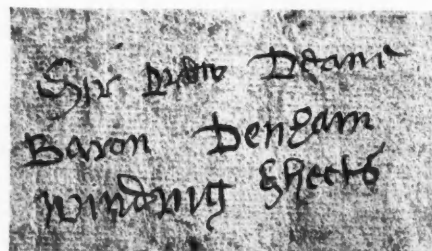 Sir Deane
Baron Denham
winding Sheets